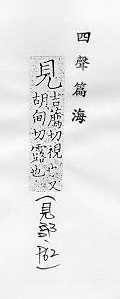 四聲篇海
見吉薦切視也又
胡甸切露也
(見部.P62)